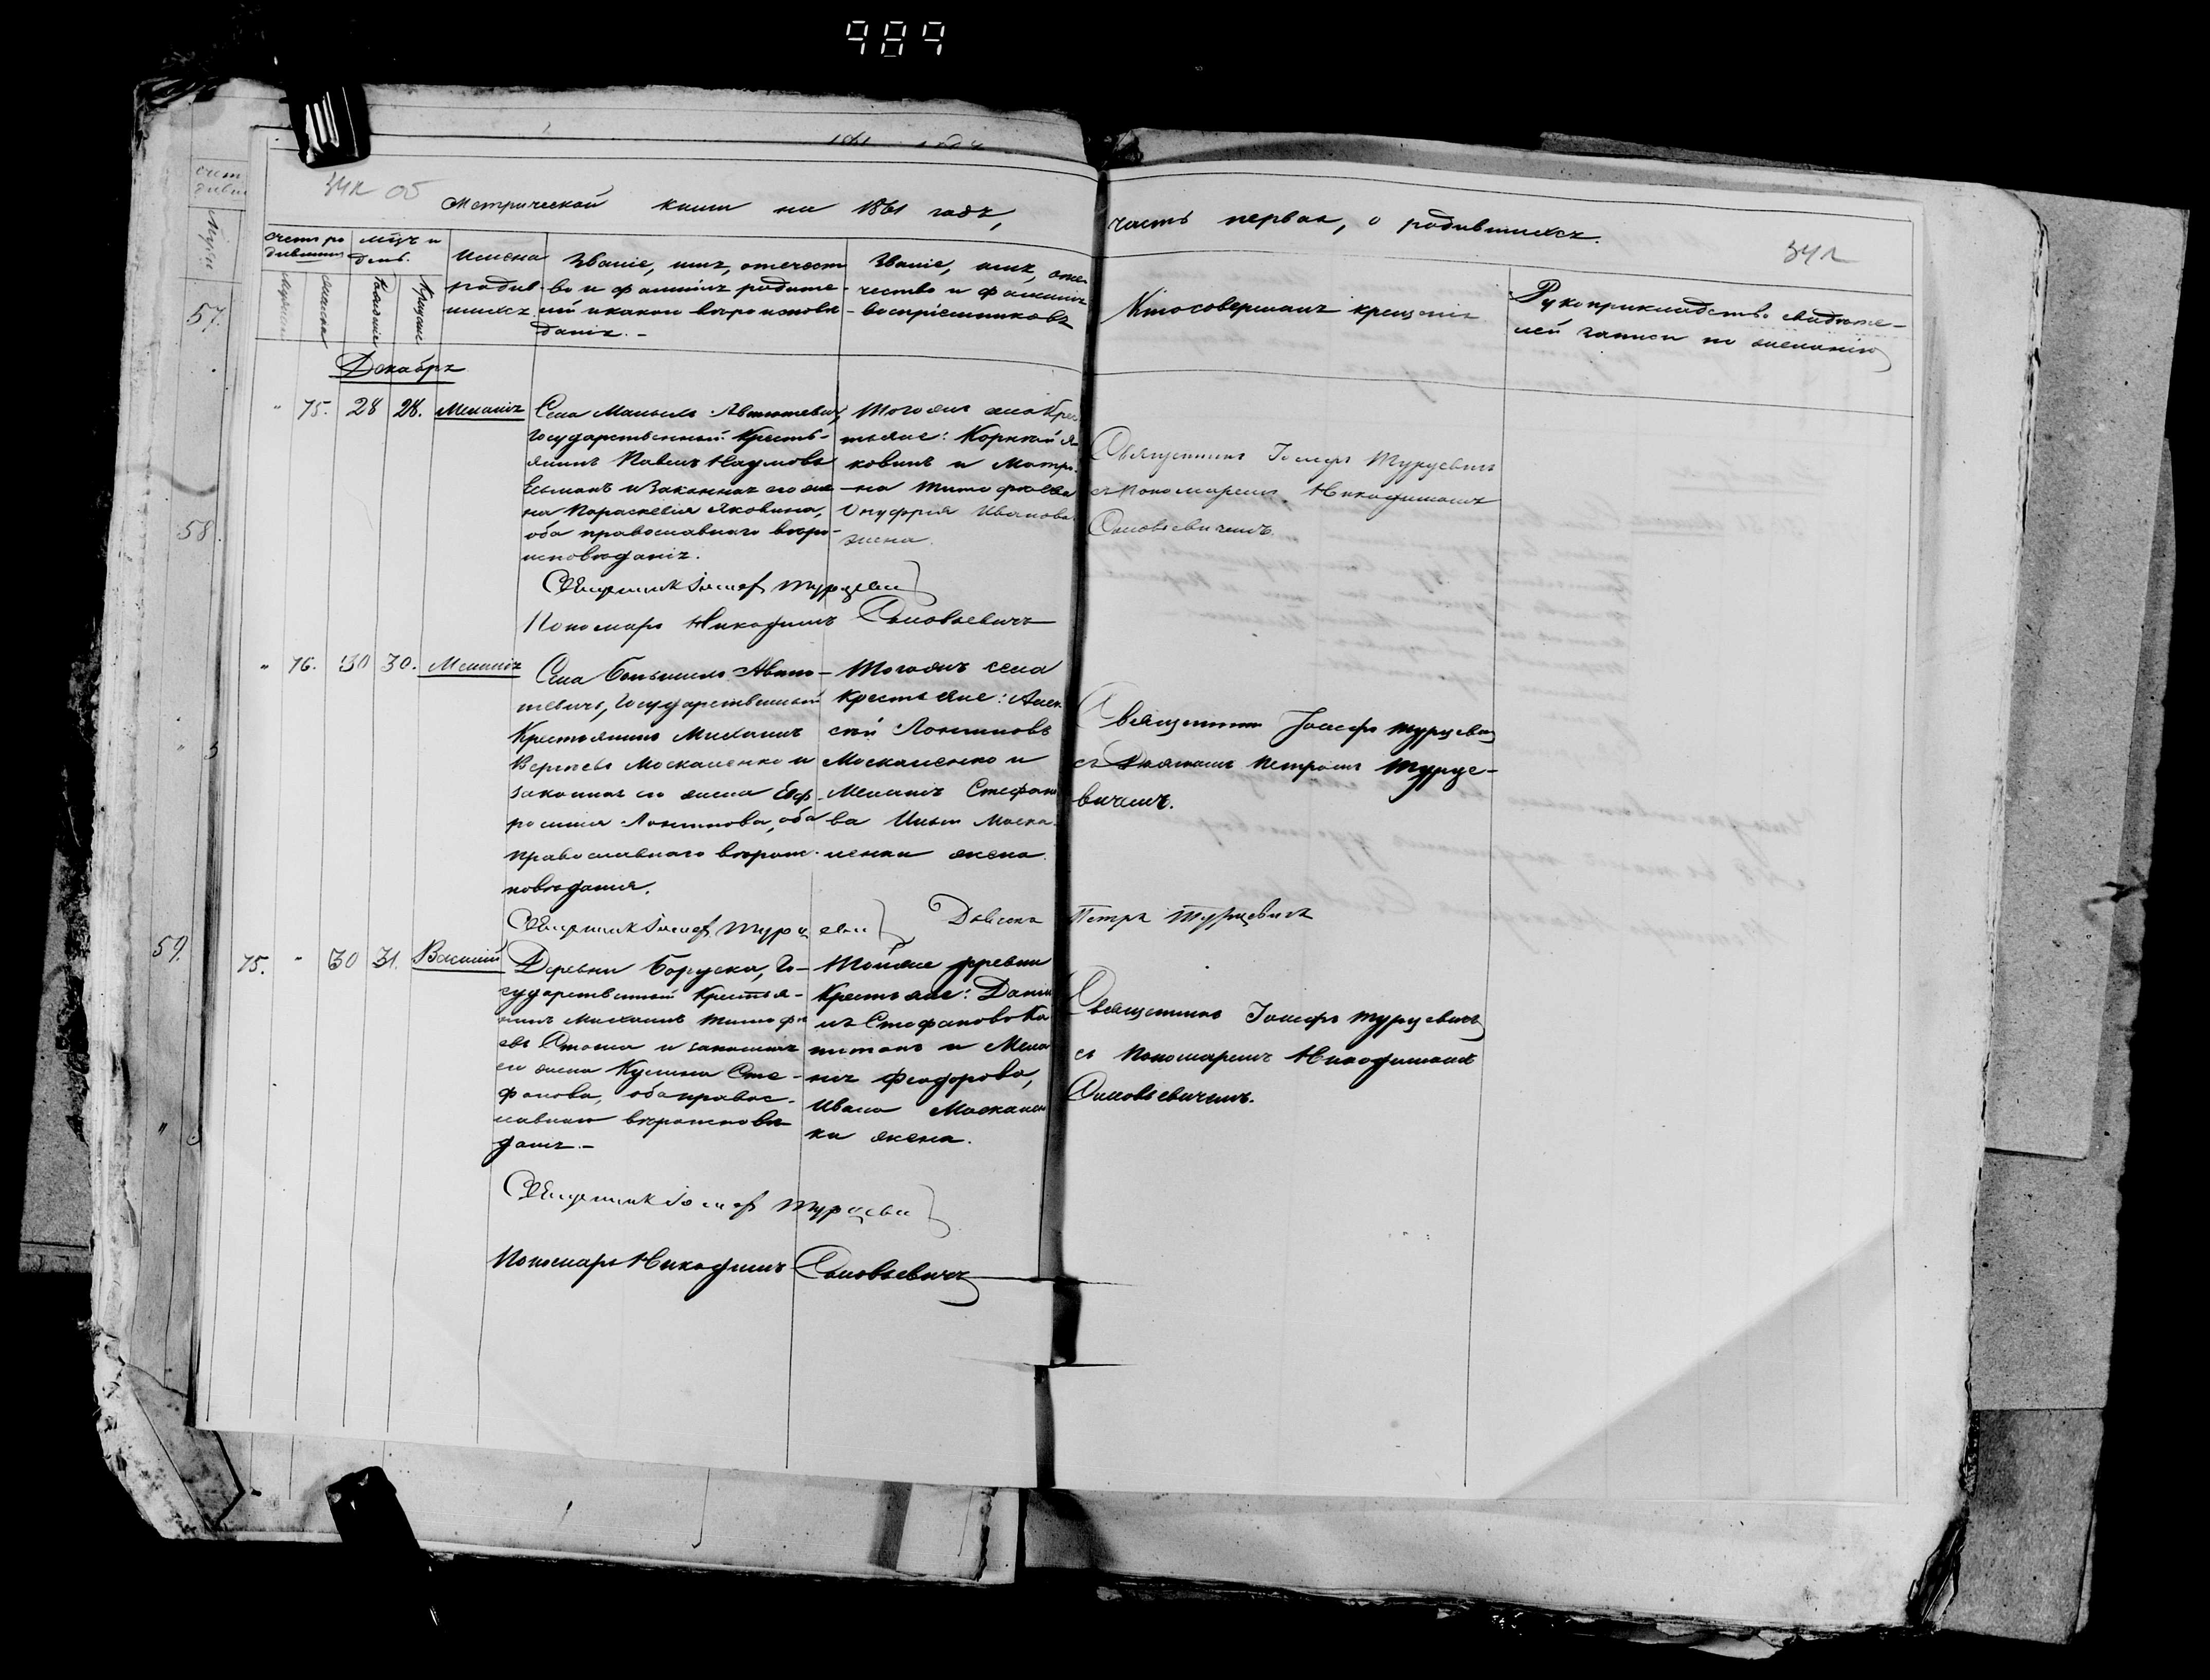 989
Метрической книги на 1861 годъ,
часть первая, о родившихся.
342
Счетъ ро
дившихся
Мѣсяцъ и
день.
Рожденіе
Крещеніе
Имена
родив
шихся
Званіе, имя, отечест
во и фамилія родите-
лей и какого вѣроисповѣ
данія.-
Званіе, имя, оте
чество и фамилія
воспріемниковъ
Кто совершалъ крещеніе
Рукоприкладство свидѣте-
лей записи по желанію
57.
58.
59.
Декабрь
" 75. 28 28. Меланія
Села Малыхъ Автютевичъ,
Государственный Кресть-
янинъ Павелъ Наумовъ
Есьманъ и законная его же
на Параскевія Яковлева,
оба православнаго вѣро-
исповѣданія.
Того же села Крес
тьяне: Корнилій Я
ковлевъ и Матро
на Тимофѣева
Онуфрія Иванова
жена.
Священникъ Іосифъ Турцевичъ
съ Пономаремъ Никодимомъ
Соловьевичемъ.
Священникъ Іосифъ Турцевич
Пономарь Никодимъ Соловьевичъ
" 76. 30 30. Меланія
Села Большихъ Автю-
тевичъ, Государственный
Крестьянинъ Михаилъ
Москаленко и
законная его жена Евф
росинія Логинова, оба
православнаго вѣроис-
повѣданія.
Того же села
Крестьяне: Алек
сѣй Логиновъ
Москаленко и
Меланія Стефано
ва Ильи Моска
ленки жена.
Священникъ Іосифъ Турцевичъ
съ Дьячкомъ Петромъ Турце-
вичемъ.
Священникъ Іосифъ Турцевич
Дьячекъ Петръ Турцевичъ
75. " 30 31. Василій
Деревни Боруска, Го-
сударственный Крестья-
нинъ Михаилъ Тимофѣ
евъ и законная
его жена Кулина Сте-
фанова, оба правос-
лавнаго вѣроисповѣ
данія.-
Той же деревни
Крестьяне: Дани
лъ Стефановъ Ка
питанъ и Мела
нія Феодорова,
Ивана Москален
ки жена.
Священникъ Іосифъ Турцевичъ
съ Пономаремъ Никодимомъ
Соловьевичемъ.
Священникъ Іосифъ Турцевич
Пономарь Никодимъ Соловьевичъ